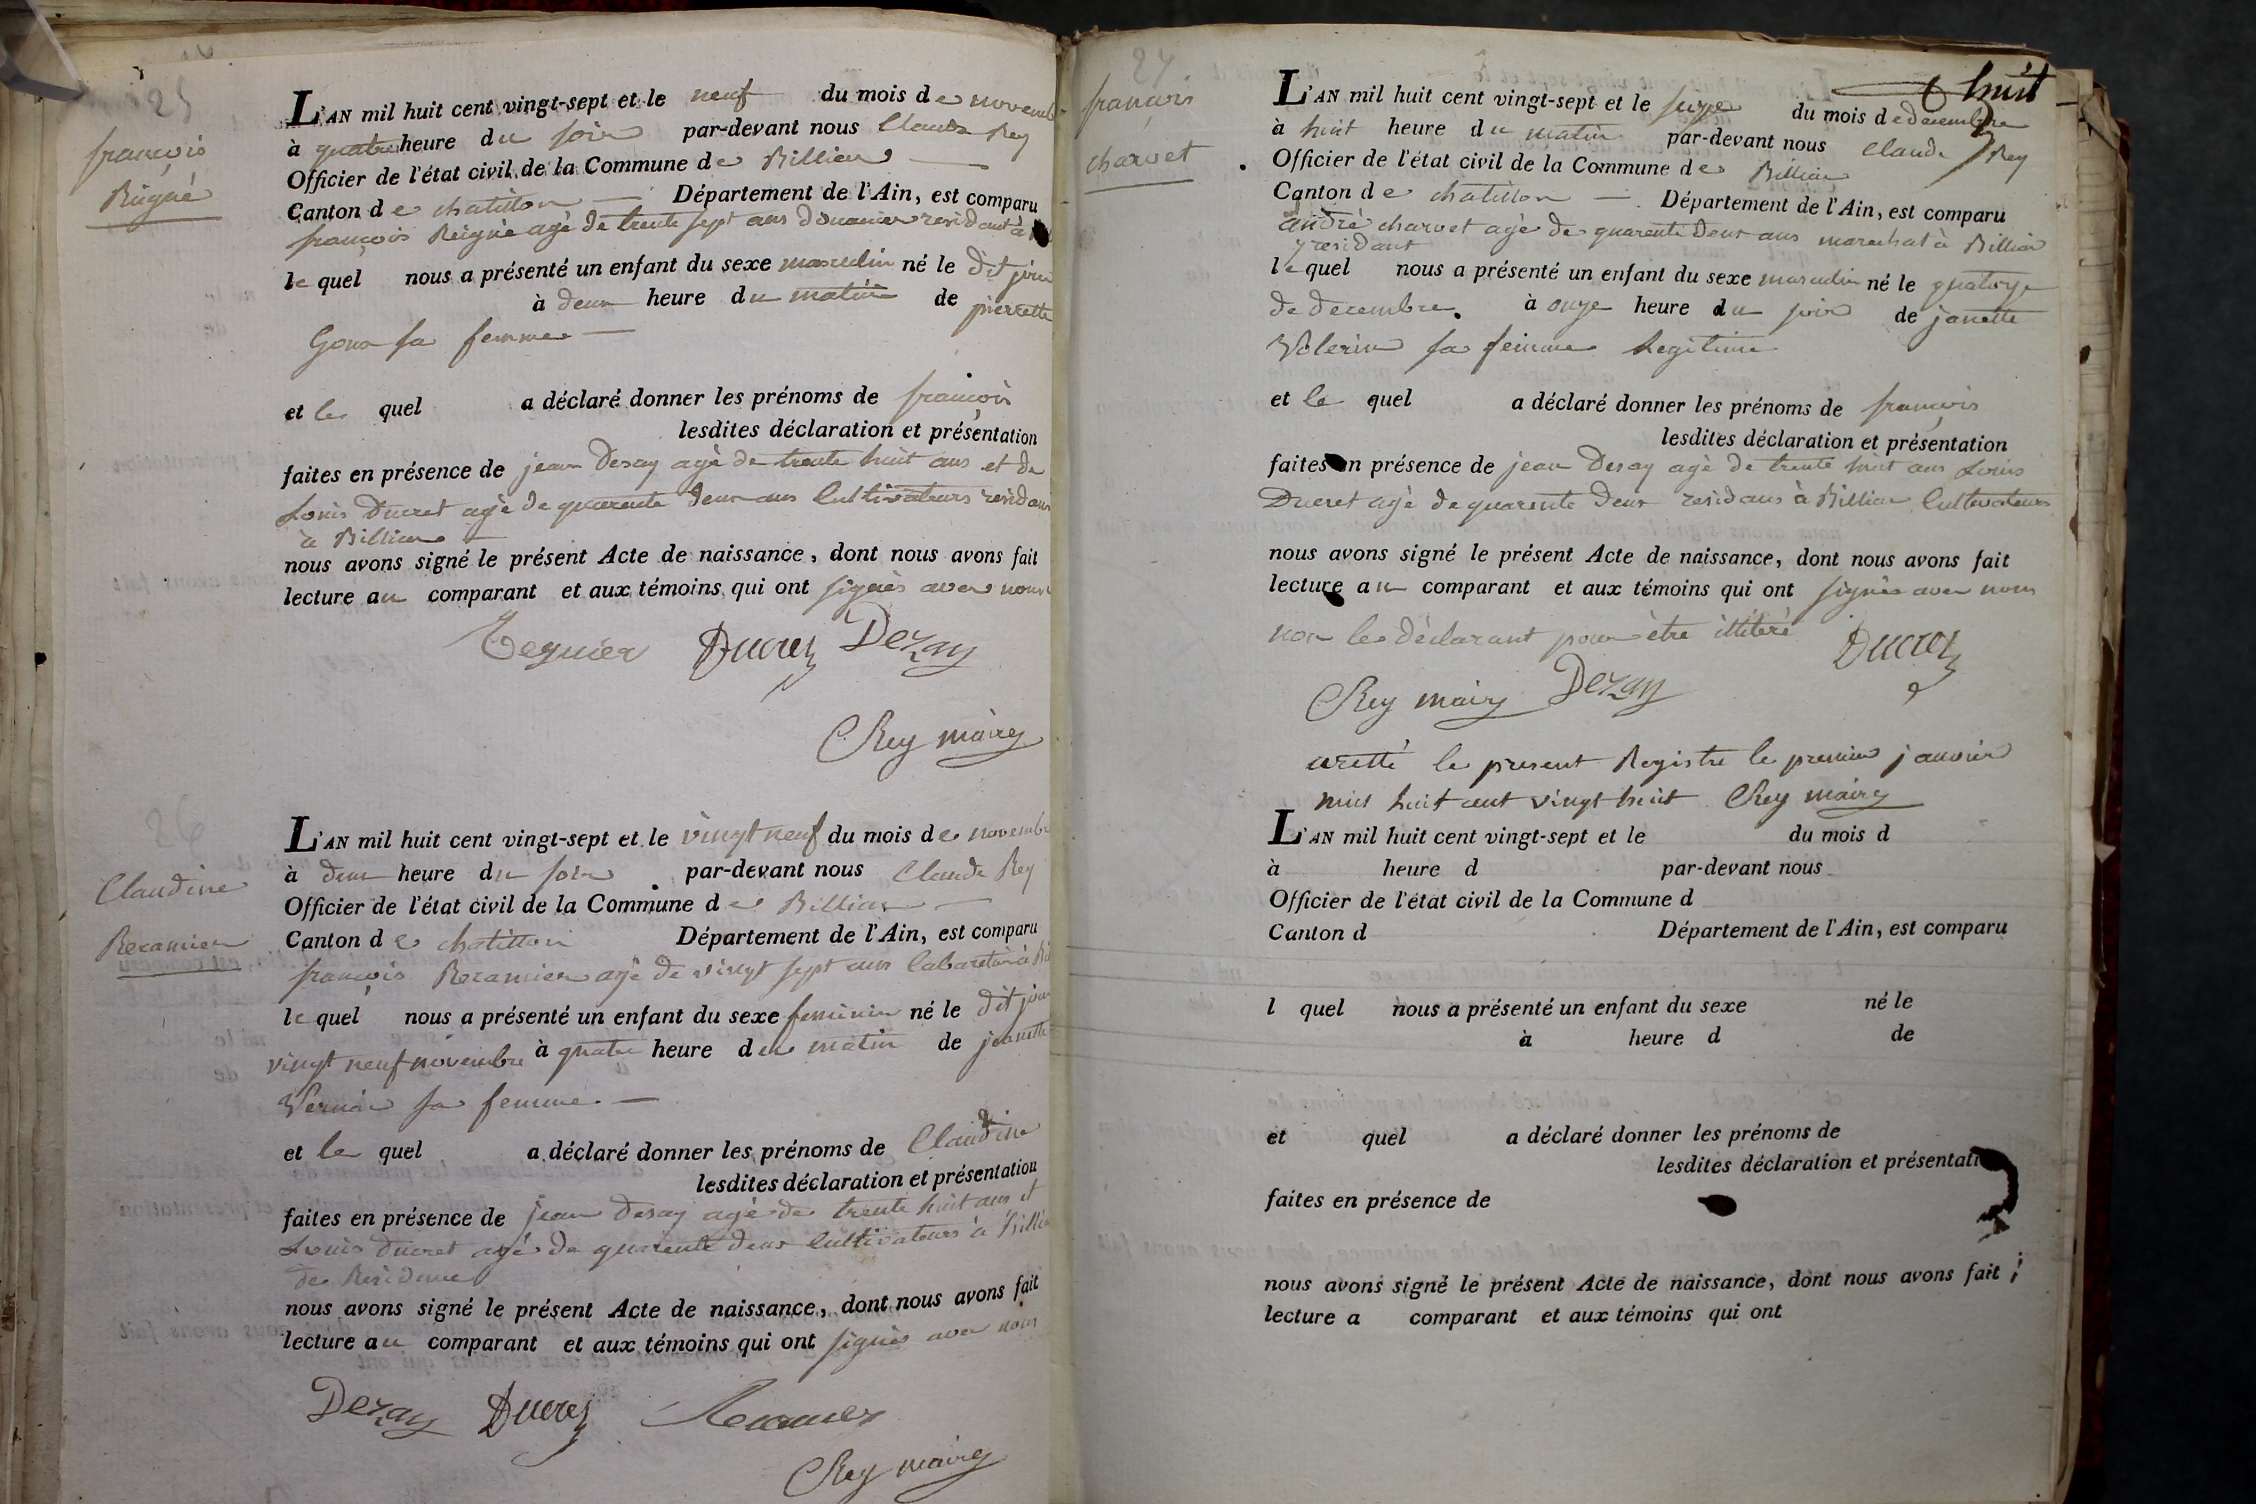 25
françois
Reignié
L'AN mil huit cent vingt-sept et le neuf du mois de novemb
à quatre heure du soir par-devant nous Claude Rey
Officier de l'état civil de la Commune de Billiau
Canton de chatillon Département de l'Ain, est comparu
françois Reignié agé de trente sept ans douanier residant à
le quel nous a présenté un enfant du sexe masculin né le dit jour
à deux heure du matin de pierrette
Goux sa femme
et le quel a déclaré donner les prénoms de françois
lesdites déclaration et présentation
faites en présence de jean Desay agé de trente huit ans et de
Louis Ducret agé de quarente deux ans Cultivateurs residans
à Billiau
nous avons signé le présent Acte de naissance, dont nous avons fait
lecture au comparant et aux témoins qui ont signés avec nous
Reguier Ducret Dezay
Rey maire
26
Claudine
Recamier
L'AN mil huit cent vingt-sept et le vingt neuf du mois de novembr
à deux heure du soir par-devant nous Claude Rey
Officier de l'état civil de la Commune de Billiau
Canton de chatillon Département de l'Ain, est comparu
françois Recamier agé de vingt sept ans Cabaretier à Bil
le quel nous a présenté un enfant du sexe feminin né le dit jour
vingt neuf novembre à quatre heure du matin de jeanette
sa femme
et le quel a déclaré donner les prénoms de Claudine
lesdites déclaration et présentation
faites en présence de jean Desay agé de trente huit ans et
Louis Ducret agé de quarente deux Cultivateurs à Billia
de Residence
nous avons signé le présent Acte de naissance, dont nous avons fait
lecture au comparant et aux témoins qui ont signés avec nous
Dezay Ducret Recamier
Rey maire
27
françois
charvet
huit
L'AN mil huit cent vingt-sept et le seize du mois de decembre
à huit heure du matin par-devant nous Claude Rey
Officier de l'état civil de la Commune de Billiau
Canton de chatillon Département de l'Ain, est comparu
andré charvet agé de quarente deux ans marechal à Billiau
y residant
le quel nous a présenté un enfant du sexe masculin né le quatorze
de decembre à onze heure du soir de janette
sa femme Legitime
et le quel a déclaré donner les prénoms de françois
lesdites déclaration et présentation
faites en présence de jean Desay agé de trente huit ans Louis
Ducret agé de quarente deux residans à Billiau Cultivateurs
nous avons signé le présent Acte de naissance, dont nous avons fait
lecture au comparant et aux témoins qui ont signés avec nous
non le déclarant pour être illiteré Ducret
Rey maire Dezay
aretté le present Registre le premier janvier
mil huit cent vingt huit Rey maire
L'AN mil huit cent vingt-sept et le du mois d
à heure d par-devant nous
Officier de l'état civil de la Commune d
Canton d Département de l'Ain, est comparu
l quel nous a présenté un enfant du sexe né le
à heure d de
et quel a déclaré donner les prénoms de
lesdites déclaration et présentati
faites en présence de
nous avons signé le présent Acte de naissance, dont nous avons fait
lecture a comparant et aux témoins qui ont